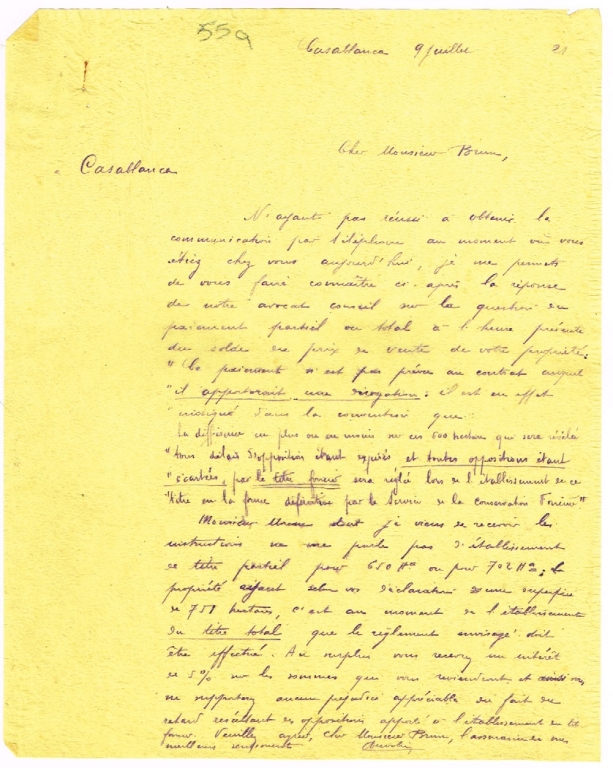 559
Casablanca 9 juillet 21
Cher Monsieur Brun,
Casablanca
N'ayant pas réussi à obtenir la
communication par téléphone au moment où vous
étiez chez vous aujourd'hui, je me permets
de vous faire connaître ci-après la réponse
de notre avocat conseil sur la question du
paiement partiel ou total à l'heure présente
du solde du prix de vente de votre propriété:
"Ce paiement n'est pas prévu au contrat auquel
"il apporterait une dérogation: il est en effet
"indiqué dans la convention que
la différence en plus ou en moins sur ces 600 hectares qui sera révélée
"tous délais d'opposition étant expirés et toutes oppositions étant
"écartées, par le titre foncier sera réglée lors de l'établissement de ce
"titre en la forme définitive par le Service de la Conservation Foncière"
Monsieur dont je viens de recevoir les
instructions ne me parle pas d'établissement
de titre partiel pour 650 Ha ou pour 702 Ha; la
propriété ayant selon vos déclarations une superficie
de 751 hectares, c'est au moment de l'établissement
du titre total que le règlement envisagé doit
être effectué. Au surplus vous recevez un intérêt
de 5% sur les sommes que vous reviendront et ainsi vous
ne supportez aucun préjudice appréciable du fait du
retard résultant des oppositions apporté à l'établissement du tit
foncier. Veuillez agréer, Cher Monsieur Brun, l'assurance de mes
meilleurs sentiments